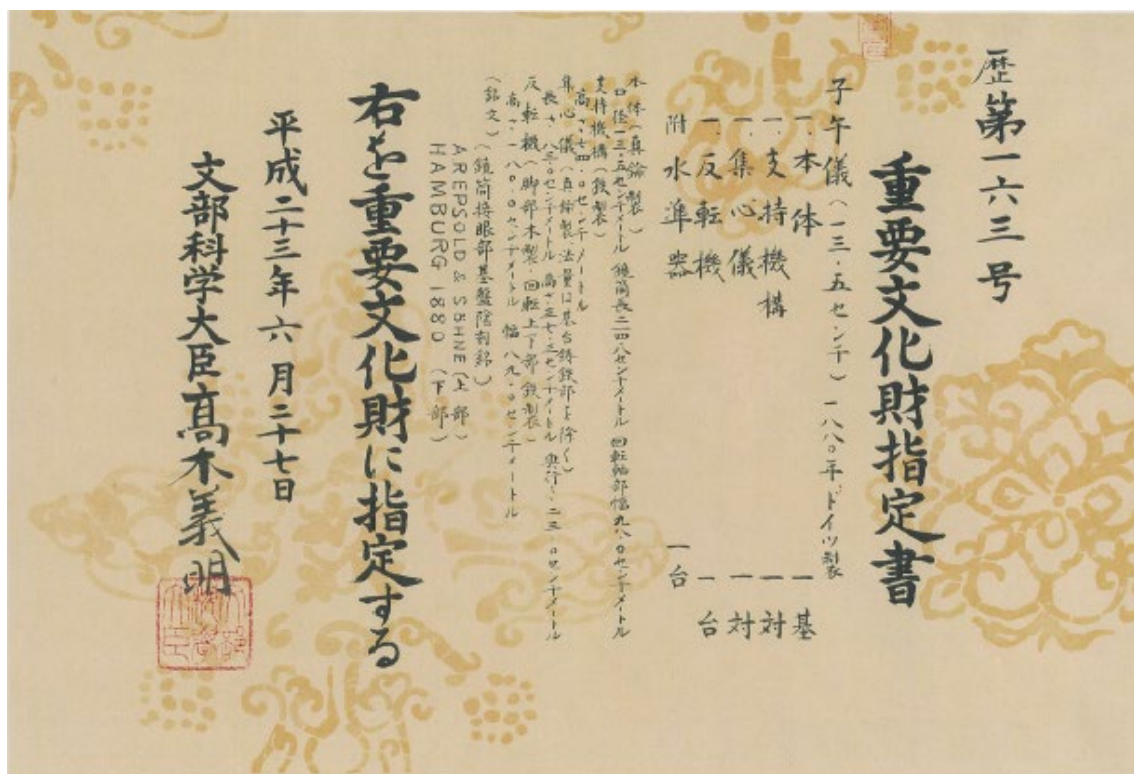 歴第一六三号
重要文化財指定書
子午儀(一三・五センチ)一八八〇年、ドイツ製
一、本体 一基
一、支持機構 一対
一、集心儀 一対
一、反転機 一台
附 水準器 一台
本体(真鍮製)
口径一三・五センチメートル 鏡筒長二四八センチメートル 回転軸部幅九八・〇センチメートル
支持機構(鉄製)
高さ一七四・〇センチメートル
集心儀(真鍮製、法量は基台鋳鉄部を除く)
長さ 八三・〇センチメートル 高さ三七・三センチメートル 奥行 二三・〇センチメートル
反転機(脚部木製・回転上下部鉄製)
高さ一八〇・〇センチメートル 幅 八九・〇センチメートル
(銘文)(鏡筒接眼部基盤陰刻銘)
A REPSOLD & SÖHNE(上部)
HAMBURG 1880(下部)
右を重要文化財に指定する
平成二十三年六月二十七日
文部科学大臣髙木義明